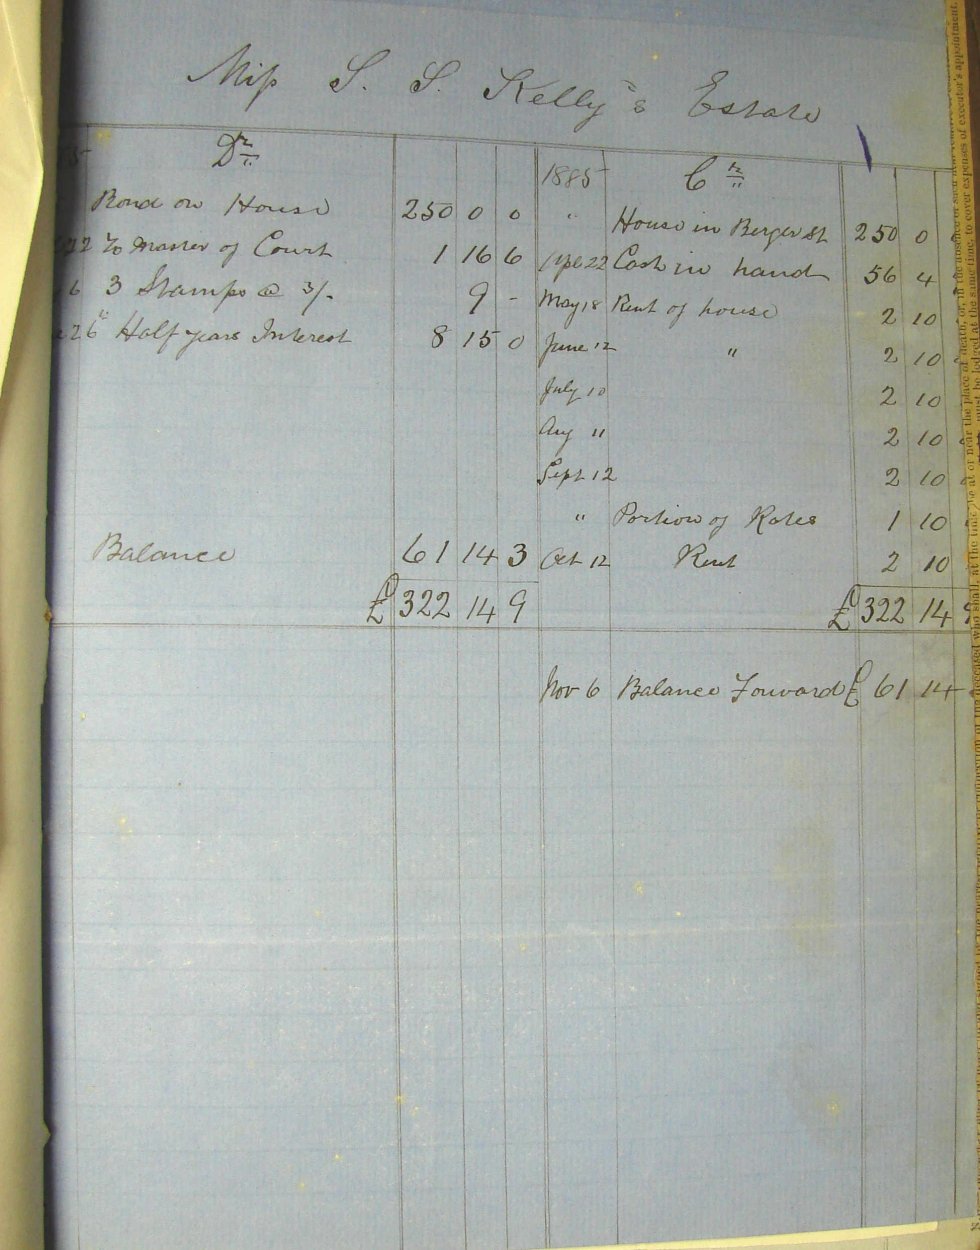 Miss S. S. Kelly's Estate
Dr
Bond on House 250 0 0
22 To Master of Court 1 16 6
6 3 Stamps @ 3/- 9 -
26 " Half years Interest 8 15 0
Balance 61 14 3
£ 322 14 9
1885 Cr
" House in Berger St 250 0
Apl 22 Cash in hand 56 4
May 18 Rent of house 2 10
June 12 " 2 10
July 10 2 10
Aug 11 2 10
Sept 12 2 10
" Portion of Rates 1 10
Oct 12 Rent 2 10
£ 322 14 9
Nov 6 Balance Forward £ 61 14